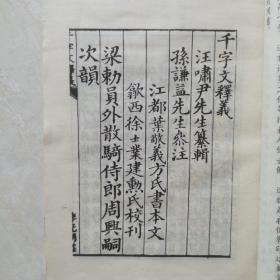 千字文釋義
汪嘯尹先生纂輯
孫謙益先生參注
江都葉敬義方氏書本文
歙西徐士業建勲氏校刊
梁勅員外散騎侍郎周興嗣
次韻